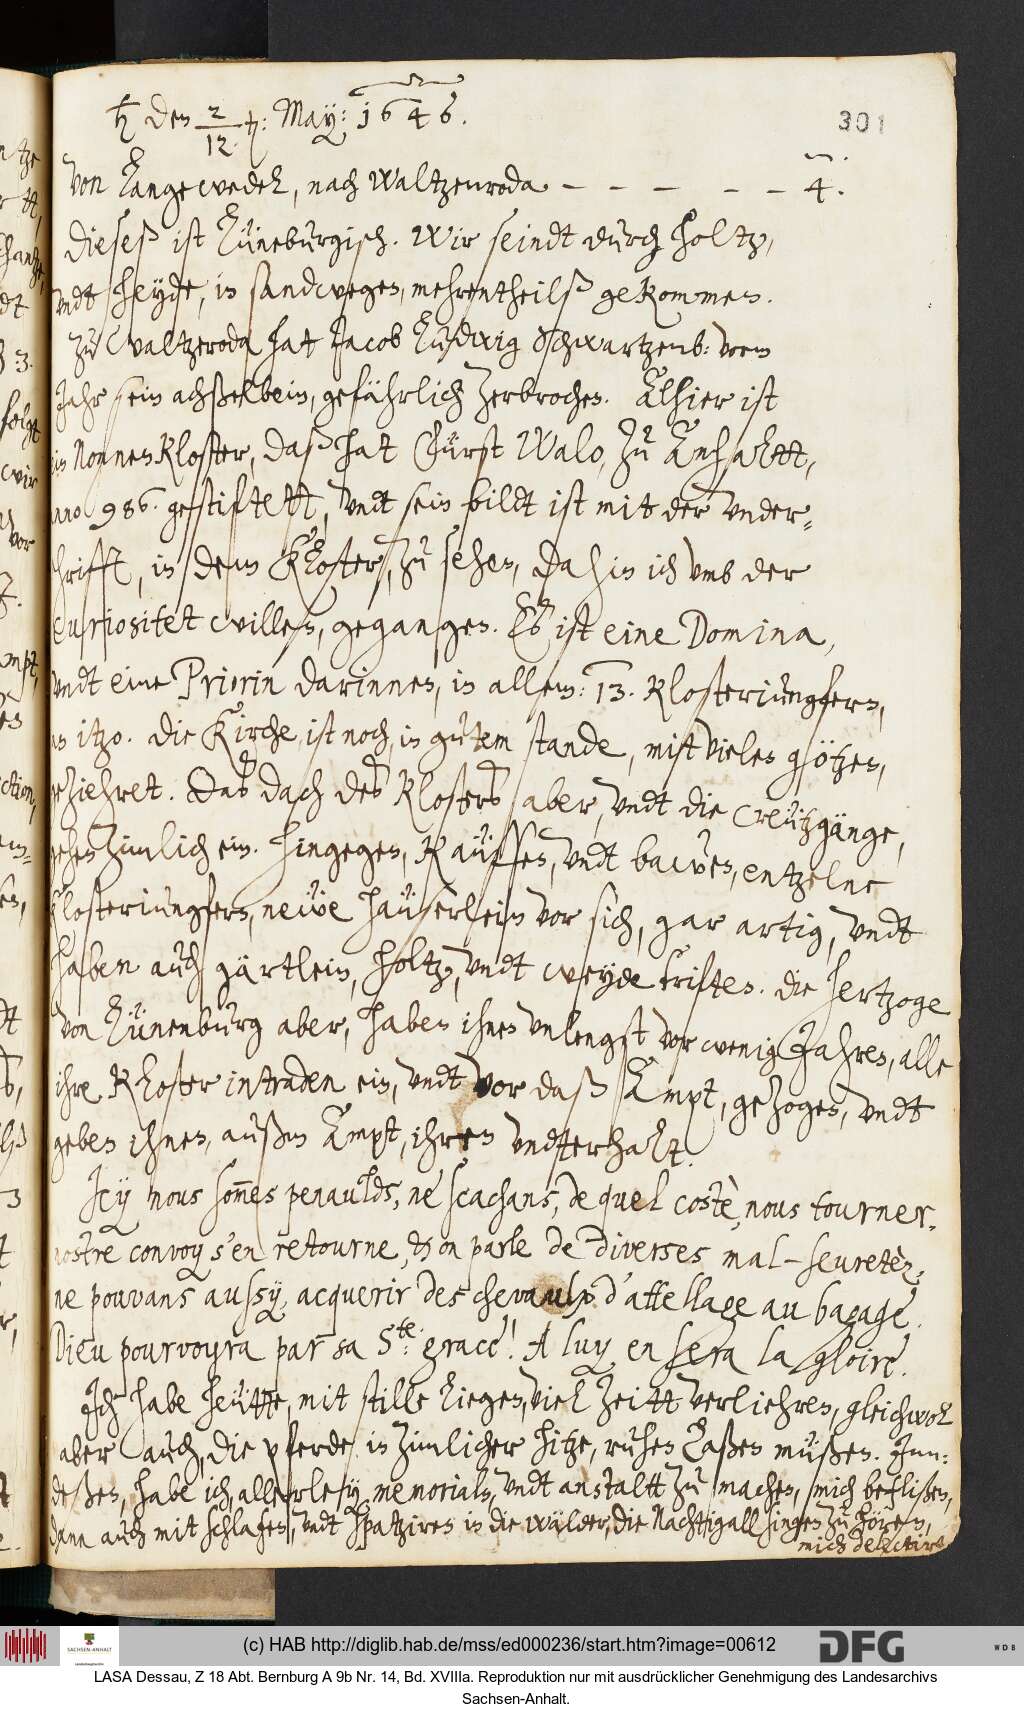 ♄ den 2/12. t: May: 1646.
301
Von Langewedel, nach Waltzenroda – – – – – 4.
dieses ist Lüneburgisch. Wir seindt durch holtz,
vndt heyde, in sandwegen, mehrentheilß gekommen.
Zu Waltzeroda hat Jacob Ludwig Schwartzenb: vorm
Jahr sein achßelbein, gefährlich zerbrochen. Alhier ist
ein NonnenKloster, daß hat Fürst Walo, zu Anhaltt,
anno 986. gestiftett, vndt sein bildt ist mit der vnder-
schrifft, in dem Kloster, zu sehen, dahin ich vmb der
curiositet willen, gegangen. Es ist eine Domina,
vndt eine Priorin darinnen, in allem: 13. Klosteriungfern,
in itzo. die Kirche ist noch, in gutem stande, mit vielen götzen,
geziehret. Das dach des Klosters aber, vndt die Creützgänge,
gehen zimlich ein. hingegen, Kauffen, vndt bawen, entzelne
Klosteriungfern, neüe häuserlein vor sich, gar artig, vndt
haben auch gärtlein, holtz, vndt weyde trifften. die hertzoge
von Lünenburg aber, haben ihnen vnlengst vor wenig Jahren, alle
ihre Kloster intraden ein, vndt vor daß Ampt, gezogen, vndt
geben ihnen, außm Ampt, ihren vndterhalt.
Icy nous som̃es penaulds, ne scachans, de quel costè, nous tourner.
nostre convoy s'en retourne, & on parle de diverses mal-seuretèz.
ne pouvans aussy, acquerir des chevaulx d'attellage au bagage.
Dieu pourvoyra par sa Ste: grace! A luy en sera la gloire.
Ich habe heütte, mit stille liegen, viel zeitt verliehren, gleichwol
aber auch, die pferde in zimlicher hitze, ruhen laßen müßen. Jnn-
deßen, habe ich, allerley, memorials, vndt anstaltt zu machen, mich beflißen,
dann auch mit schlafen, vndt spatziren in die wälder, die Nachtigall singen zu hören,
mich delectirt
(c) HAB http://diglib.hab.de/mss/ed000236/start.htm?image=00612
SACHSEN-ANHALT
DFG
WDB
LASA Dessau, Z 18 Abt. Bernburg A 9b Nr. 14, Bd. XVIIIa. Reproduktion nur mit ausdrücklicher Genehmigung des Landesarchivs
Sachsen-Anhalt.